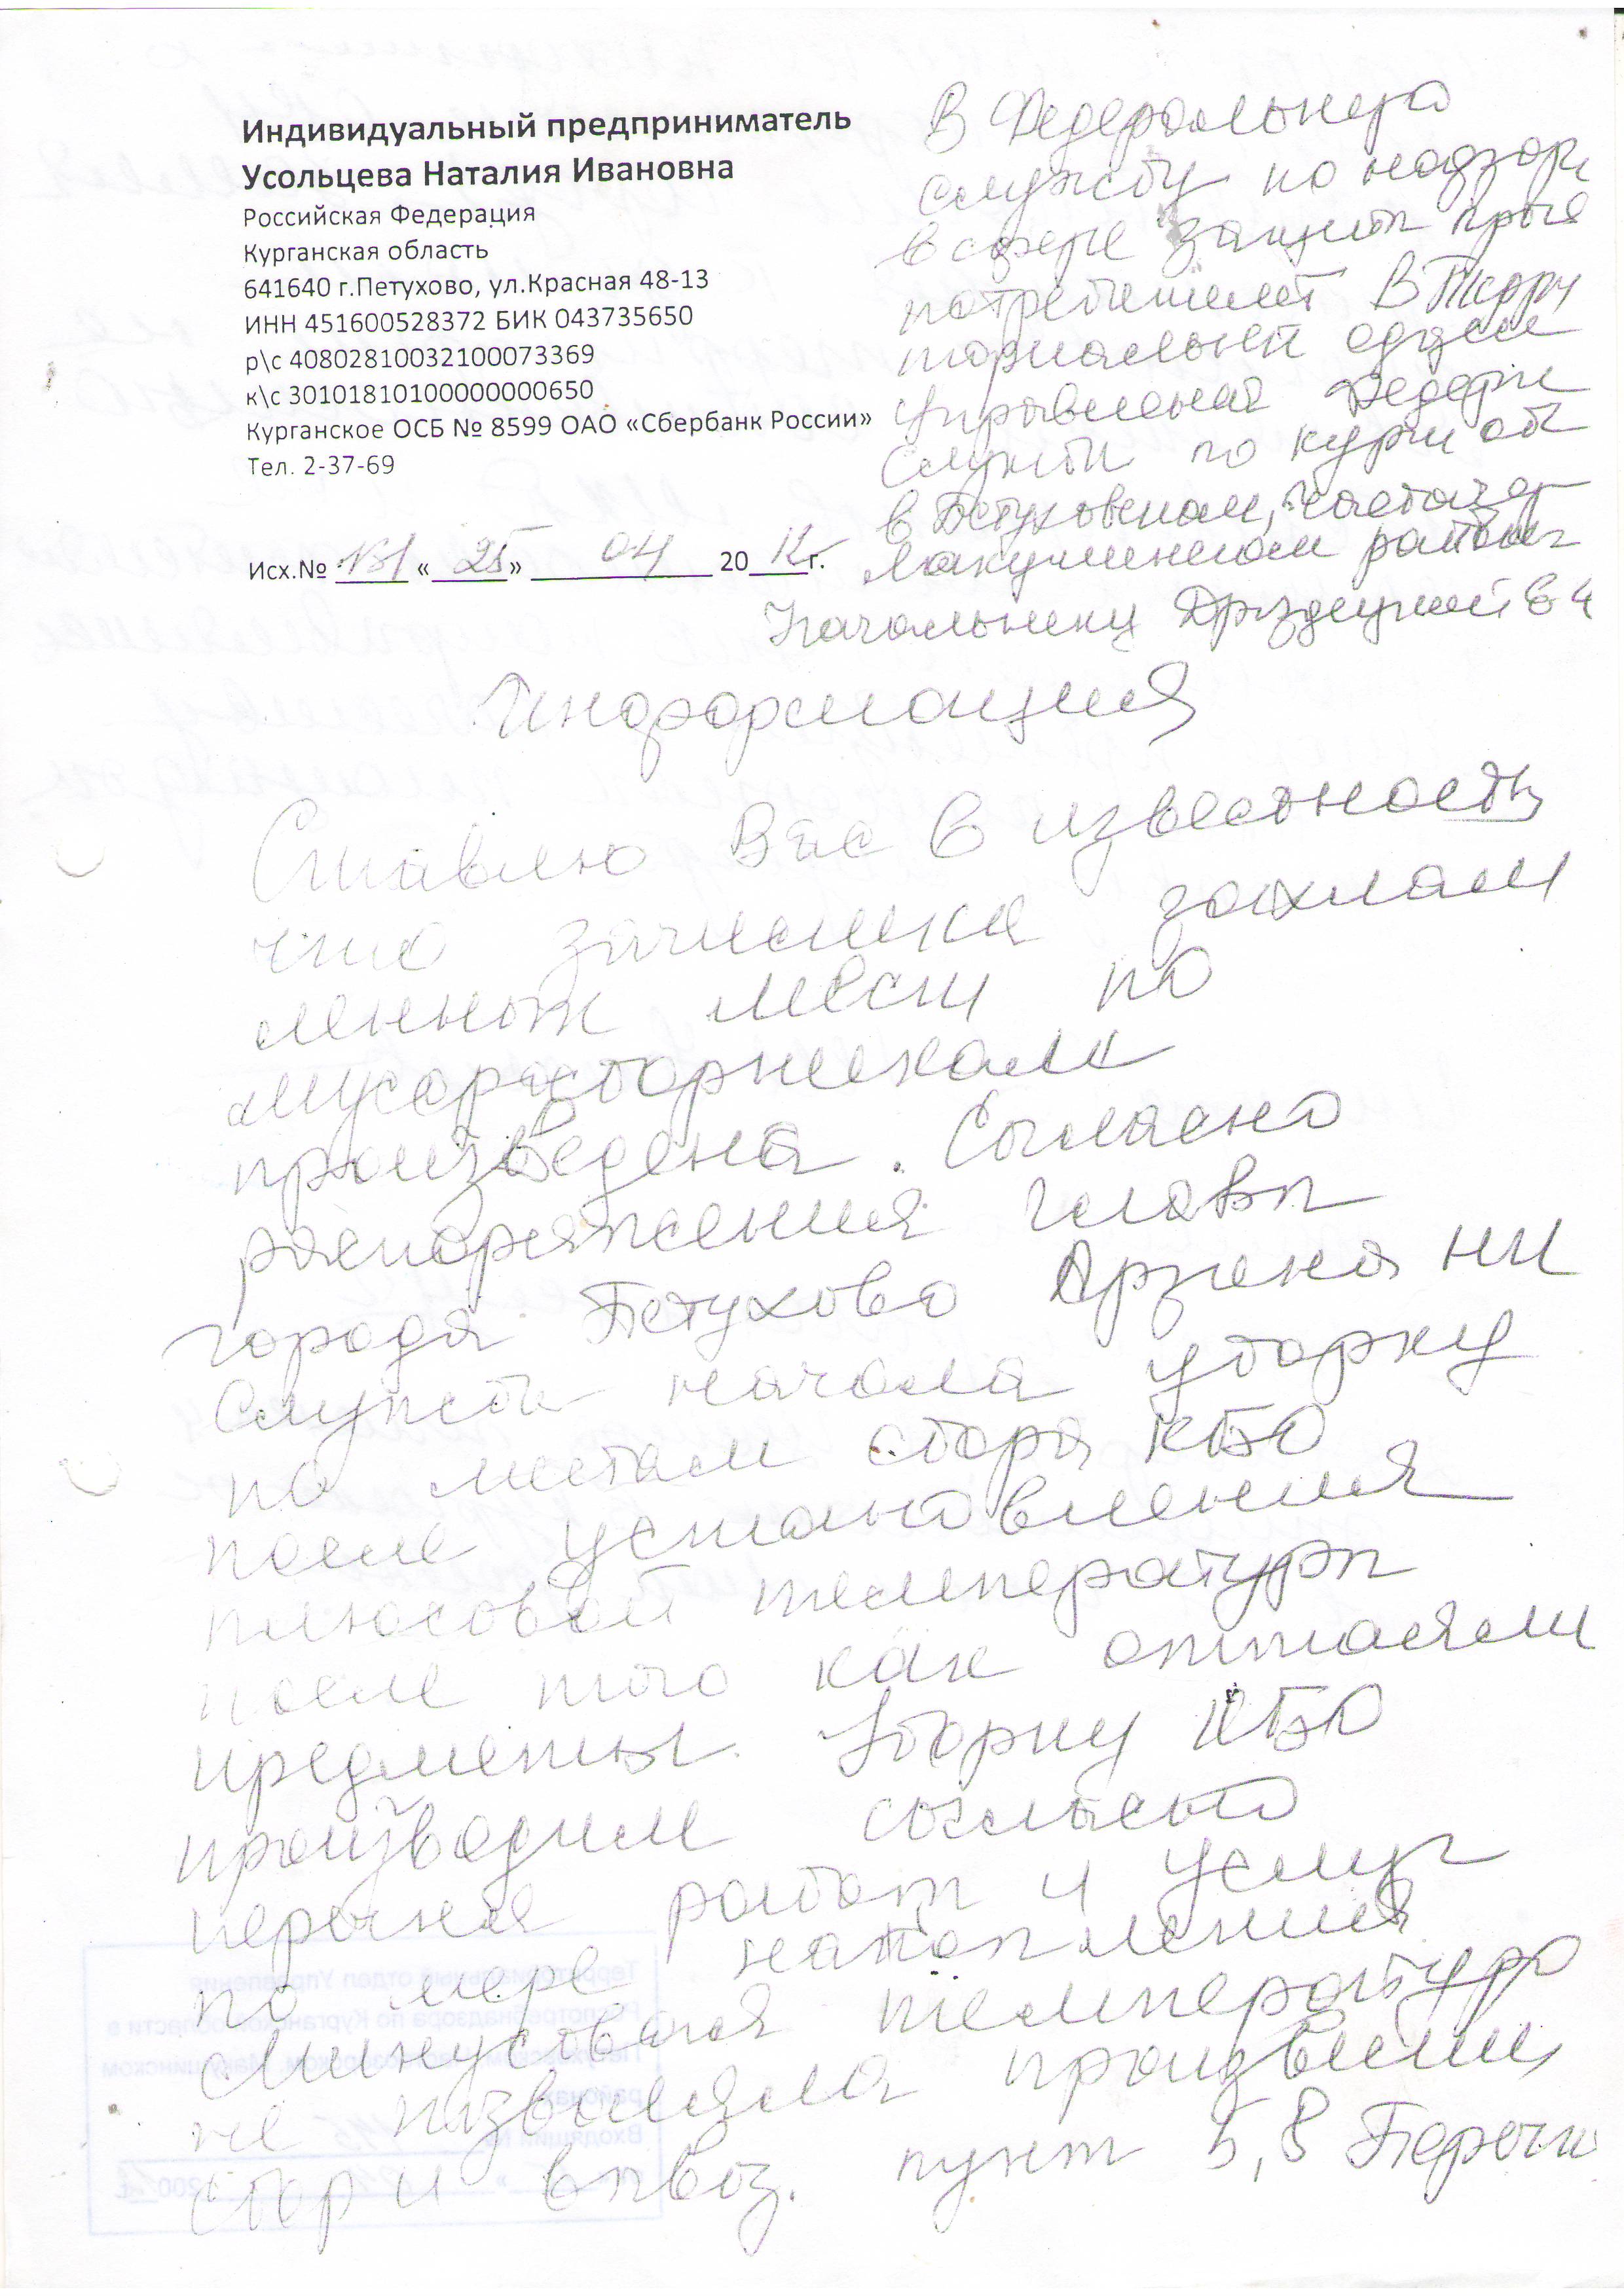 Индивидуальный предприниматель
Усольцева Наталия Ивановна
Российская Федерация
Курганская область
641640 г.Петухово, ул.Красная 48-13
ИНН 451600528372 БИК 043735650
р\с 40802810032100073369
к\с 30101810100000000650
Курганское ОСБ № 8599 ОАО «Сбербанк России»
Тел. 2-37-69
Исх.№ «25» 04 2012г.
В Федеральную
службу по надзору
в сфере защиты прав
потребителей В Терри
ториальный отдел
управления Федерал
службы по курган об
в Петуховском, Частоозер
Макушинском районах
Начальнику
Информация
Ставлю Вас в известность
что зачистка захлам
ленных мест по
мусоросборникам
произведена. Согласно
распоряжения главы
города Петухово
Службы начала уборку
по местам сбора КБО
после установления
плюсовой температуры
после того как оттаяли
предметы. Уборку КБО
производим согласно
перечня работ и услуг
по мере накопления
Минусовая температура
не позволяла произвести
сбор и вывоз. пункт 5,8 Перечня
Территориальный отдел Управления
Роспотребнадзора по Курганской области в
Петуховском, Частоозерском, Макушинском
районах
Входящий №